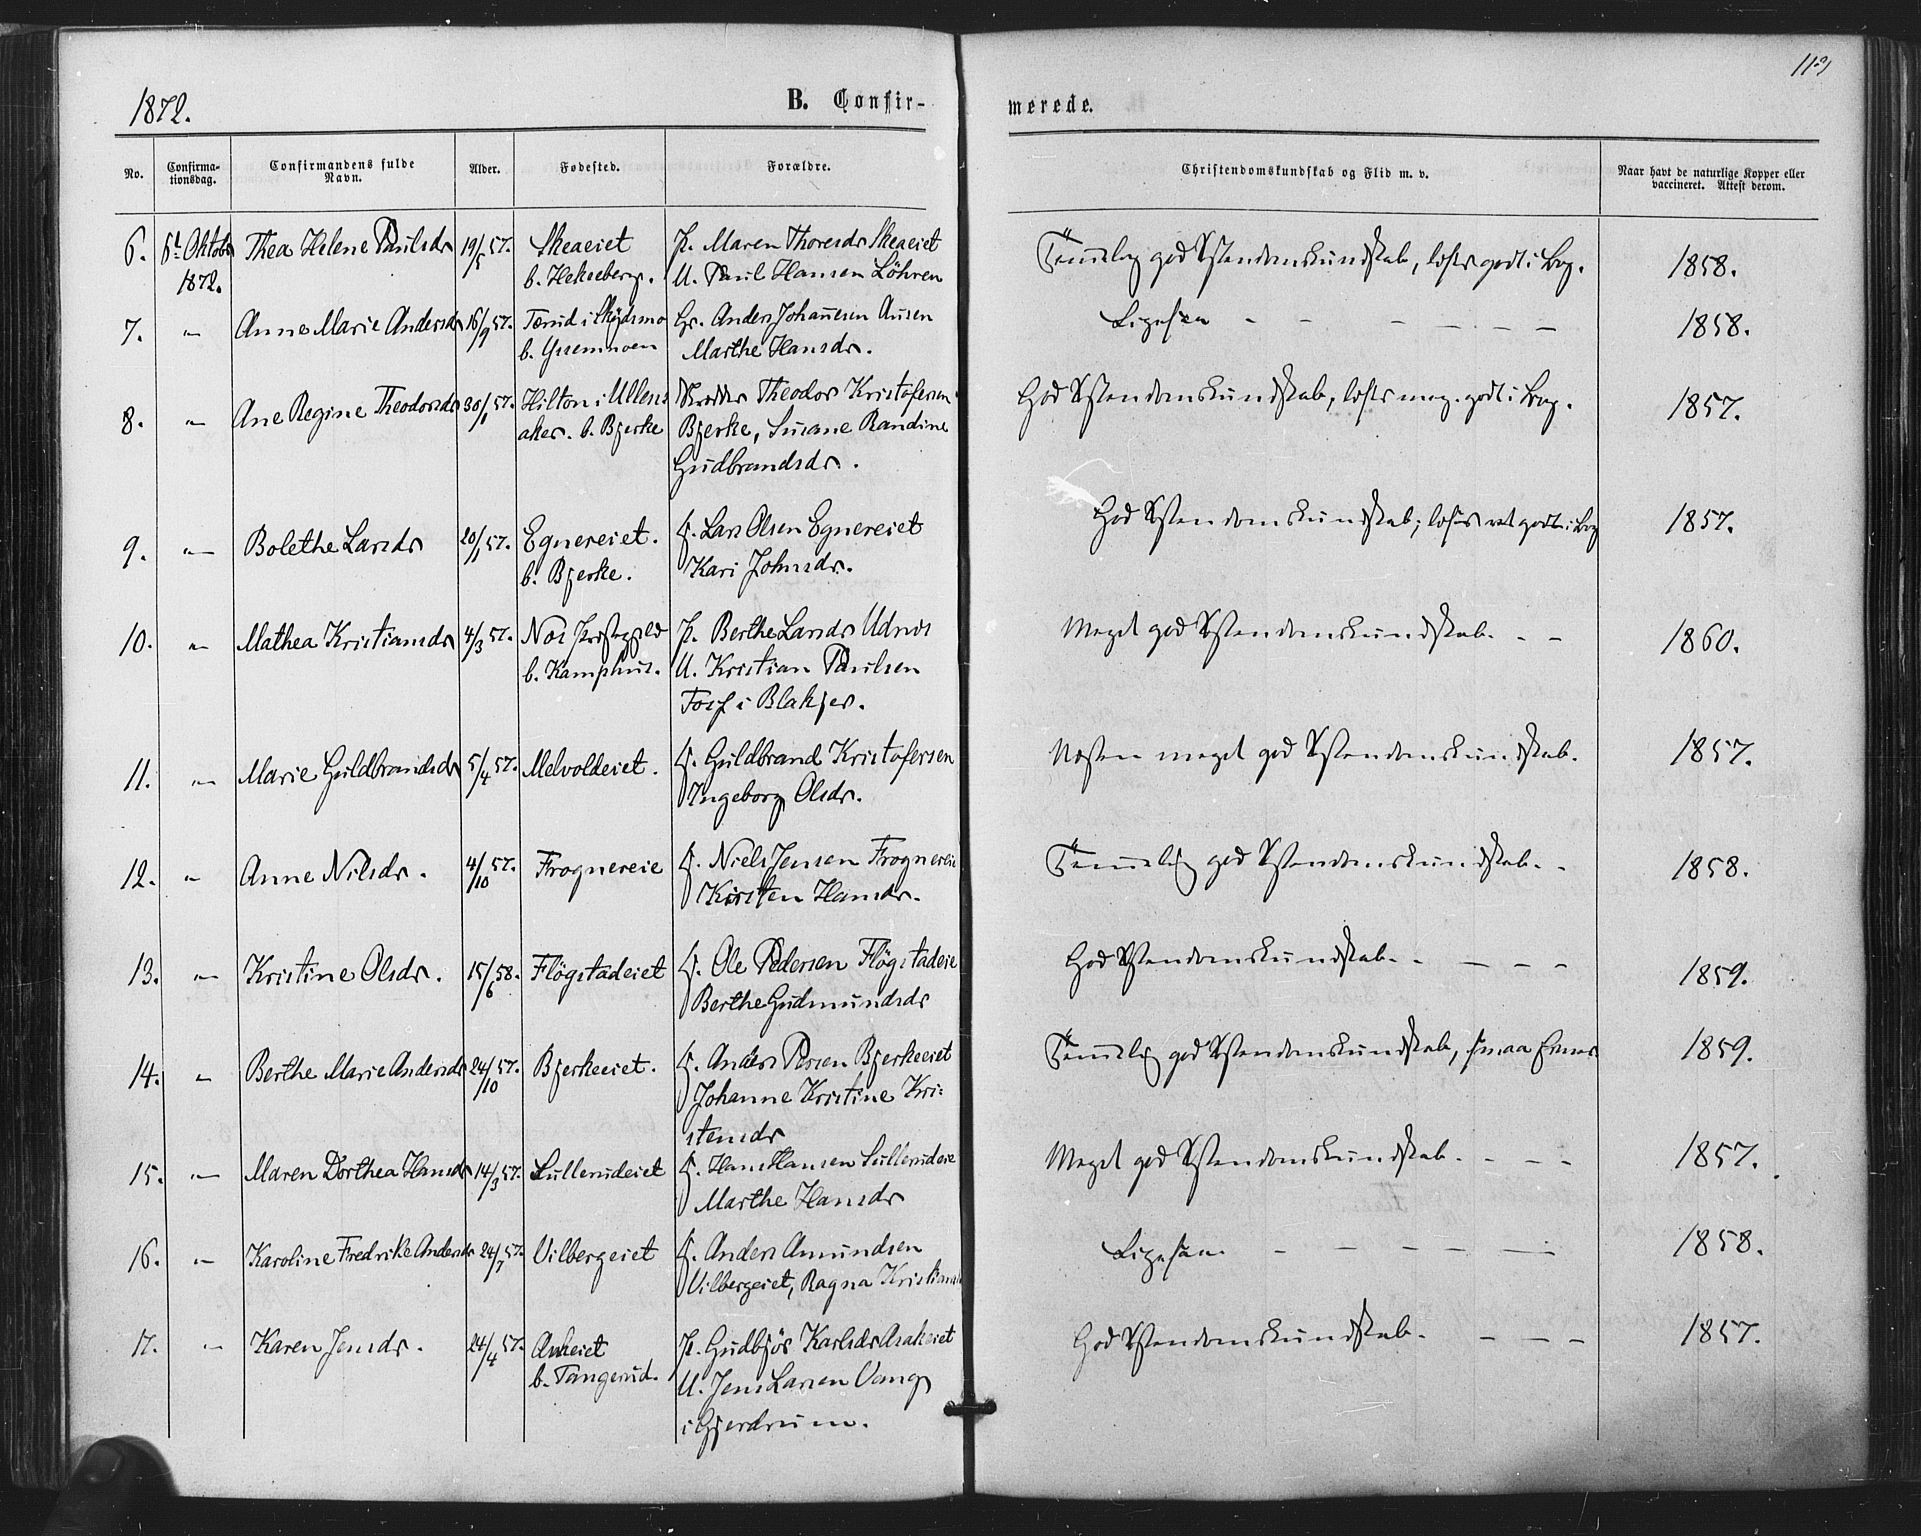 113
1872.
B. Confir-
merede.
No.
Confirma-
tionsdag.
Confirmandens fulde
Navn.
Alder.
Fødested.
Forældre.
Christendomskundskab og Flid m. v.
Naar havt de naturlige Kopper eller
vaccineret. Attest derom.
6. 6t Oktobr Thea Helene Paulsdr 19/5 57. Skeaeiet P. Maren Thoresdr Skeaeiet Temlig god Xstendomskundskab, læser godt i Bog. 1858.
1872. b. Hekseberg. U. Paul Hansen Löhren
7. " Anne Marie Andersdr 16/9 57. Tærud i Skydsmo Gr. Anders Johannesen Ausen Ligesaa - - - - - - 1858.
b. Marthe Hansdr.
8. " Ane Regine Theodorsdr 30/1 57. Hilton i Ullens Theodor Kristofersen God Xstendomskundskab, læser meg. godt i Bog. 1857.
aker. b. Bjerke Bjerke, Susane Randine
Gudbrandsdr.
9. " Bolethe Larsdr 20/1 57. Egnereiet. F. Lars Olsen Egnereiet God Xstendomskundskab; læser ret godt i Bog 1857.
b. Bjerke. Kari Johnsdr.
10. " Mathea Kristiansdr 4/3 57. Nes Præstegjeld P. Berthe Larsdr Udnes Meget god Xstendomskundskab. - - 1860.
b. Kamphus. U. Kristian Paulsen
i Blakjer.
11. " Marie Guldbrandsdr 5/4 57. Melvoldeiet. F. Guldbrand Kristofersen Næsten meget god Xstendomskundskab. 1857.
Ingeborg Olsdr.
12. " Anne Nilsdr. 4/10 57. Frognereie F. Niels Jensen Frognereie Temlig god Xstendomskundskab. - 1858.
Kirsten Hansdr.
13. " Kristine Olsdr. 15/6 58. Flögstadeiet F. Ole Pedersen Flögstadeie God Xstendomskundskab. - - - - 1859.
Berthe Gudmundsdr
14. " Berthe Marie Andersdr 24/10 57. Bjerkeeiet. F. Anders Persen Bjerkeeiet Temlig god Xstendomskundskab, smaa Evner 1859.
Johanne Kristine Kri-
stensdr
15. " Maren Dorthea Hansdr 14/3 57. Lullerudeiet F. Hans Hansen Lullerudeie Meget god Xstendomskundskab. - - - 1857.
Marthe Hansdr
16. " Karoline Fredrike Andersdr 24/7 57. Vilbergeiet F. Anders Amundsen Ligesaa. - - - - - 1858.
Vilbergeiet, Ragna
17. " Karen Jensdr. 24/4 57. Askeiet P. Gudbjör Karlsdr God Xstendomskundskab. - - - 1857.
b. Tangerud. U. Jens Larsen Vang
i Gjerdrum.